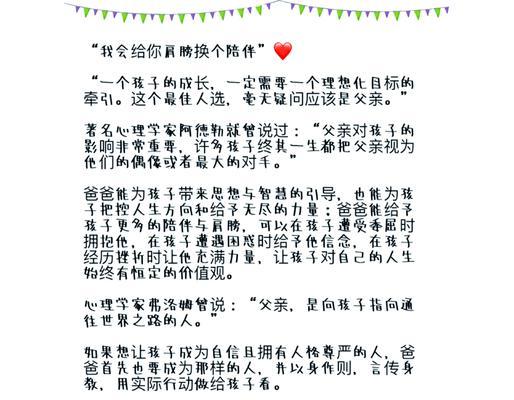 “我会给你肩膀换个陪伴”❤️
“一个孩子的成长，一定需要一个理想化目标的
牵引。这个最佳人选，毫无疑问应该是父亲。”
著名心理学家阿德勒就曾说过：“父亲对孩子的
影响非常重要，许多孩子终其一生都把父亲视为
他们的偶像或者最大的对手。”
爸爸能为孩子带来思想与智慧的引导，也能为孩
子把控人生方向和给予无尽的力量；爸爸能给予
孩子更多的陪伴与肩膀，可以在孩子遭受委屈时
拥抱他，在孩子遭遇困惑时给予他信念，在孩子
经历挫折时让他充满力量，让孩子对自己的人生
始终有恒定的价值观。
心理学家弗洛姆曾说：“父亲，是向孩子指向通
往世界之路的人。”
如果想让孩子成为自信且拥有人格尊严的人，爸
爸首先也要成为那样的人，并以身作则，言传身
教，用实际行动做给孩子看。